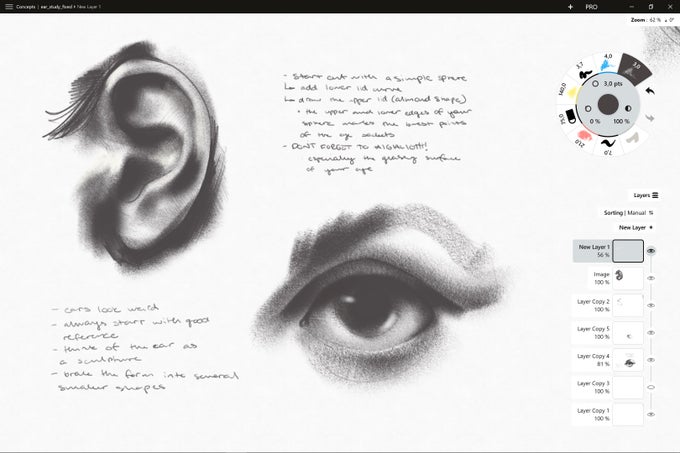 Concepts | ear_study_fixed • New Layer 1
+ PRO
Zoom : 62 % 0°
- Start out with a simple sphere
add lower lid curve
draw the upper lid (almond shape)
• the upper and lower edges of your
sphere marks the lowest points
of the eye sockets
- DON'T FORGET TO HIGHLIGHT!
especially the glassy surface
of your eye
4,0
3,7
3,0
140,0
75,0
21,0
7,0
3,0 pts
0 % 100 %
Layers
Sorting | Manual
New Layer +
New Layer 1
56 %
Image
100 %
Layer Copy 2
100 %
Layer Copy 5
100 %
Layer Copy 4
81 %
Layer Copy 3
100 %
Layer Copy 1
100 %
- ears look weird
- always start with good
reference
- think of the ear as
a sculpture
- brake the form into several
smaller shapes